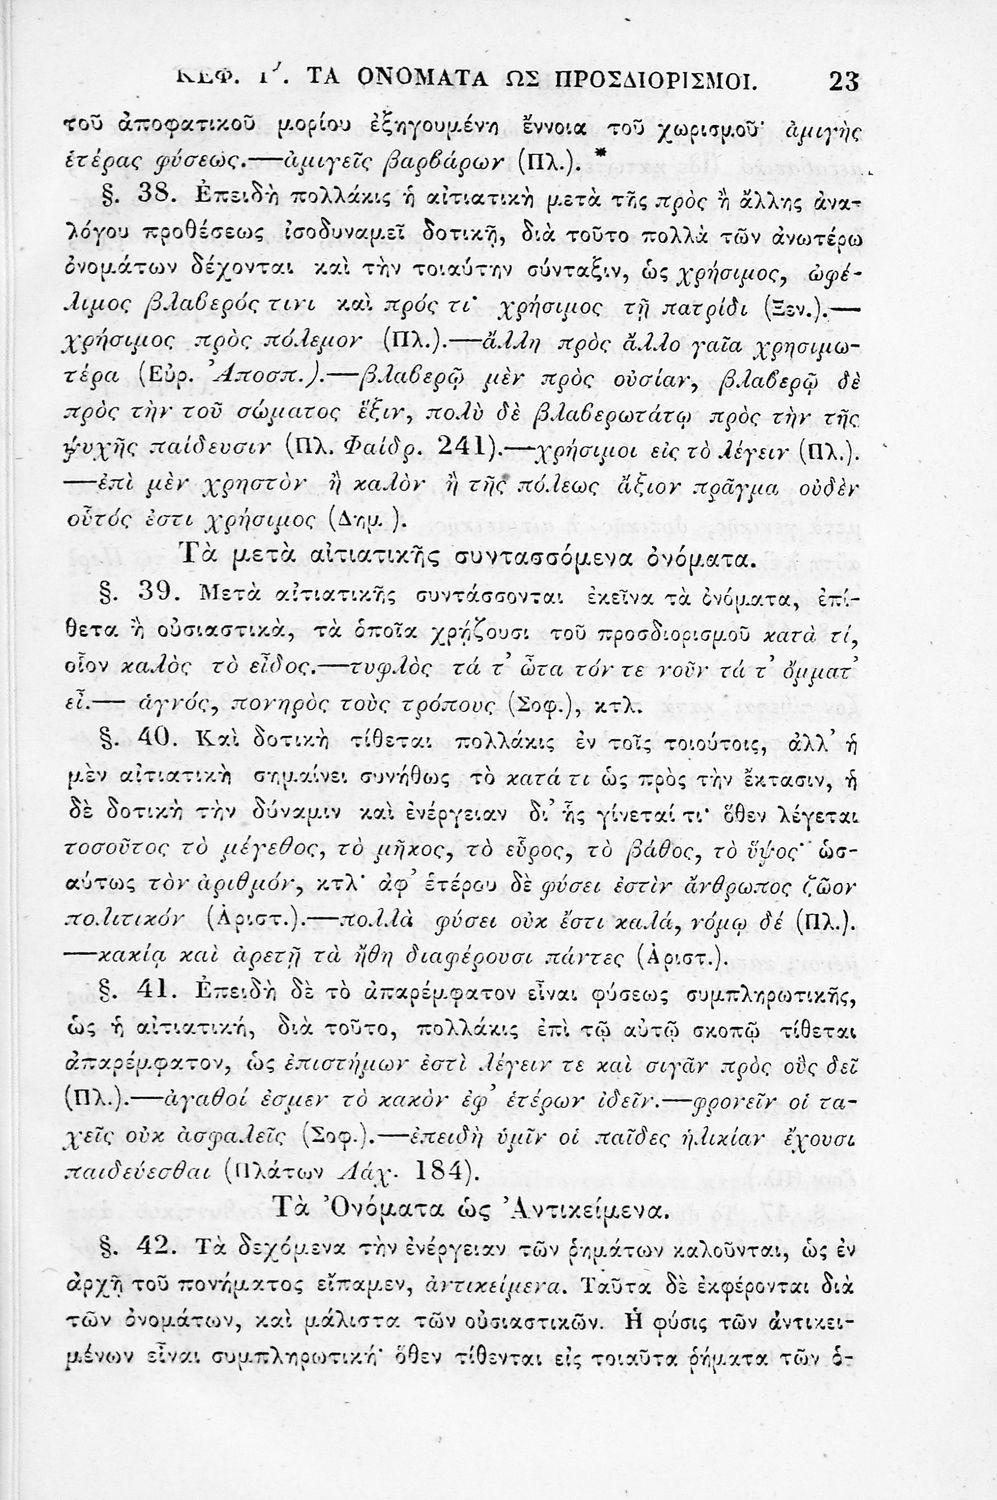 ΚΕΦ. Γʹ. ΤΑ ΟΝΟΜΑΤΑ ΩΣ ΠΡΟΣΔΙΟΡΙΣΜΟΙ. 23
τοῦ ἀποφατικοῦ μορίου ἐξηγουμένη ἔννοια τοῦ χωρισμοῦ· ἀμιγὴς
ἑτέρας φύσεως.—ἀμιγεῖς βαρβάρων (Πλ.). *
§. 38. Ἐπειδὴ πολλάκις ἡ αἰτιατικὴ μετὰ τῆς πρὸς ἢ ἄλλης ἀνα-
λόγου προθέσεως ἰσοδυναμεῖ δοτικῇ, διὰ τοῦτο πολλὰ τῶν ἀνωτέρω
ὀνομάτων δέχονται καὶ τὴν τοιαύτην σύνταξιν, ὡς χρήσιμος, ὠφέ-
λιμος βλαβερός τινι καὶ πρός τι· χρήσιμος τῇ πατρίδι (Ξεν.).—
χρήσιμος πρὸς πόλεμον (Πλ.).—ἄλλη πρὸς ἄλλο γαῖα χρησιμω-
τέρα (Εὐρ. Ἀποσπ.).—βλαβερῷ μὲν πρὸς οὐσίαν, βλαβερῷ δὲ
πρὸς τὴν τοῦ σώματος ἕξιν, πολὺ δὲ βλαβερωτάτῳ πρὸς τὴν τῆς
ψυχῆς παίδευσιν (Πλ. Φαίδρ. 241).—χρήσιμοι εἰς τὸ λέγειν (Πλ.).
—ἐπὶ μὲν χρηστὸν ἢ καλὸν ἢ τῆς πόλεως ἄξιον πρᾶγμα οὐδὲν
οὗτός ἐστι χρήσιμος (Δημ.).
Τὰ μετὰ αἰτιατικῆς συντασσόμενα ὀνόματα.
§. 39. Μετὰ αἰτιατικῆς συντάσσονται ἐκεῖνα τὰ ὀνόματα, ἐπί-
θετα ἢ οὐσιαστικὰ, τὰ ὁποῖα χρῄζουσι τοῦ προσδιορισμοῦ κατὰ τί,
οἷον καλὸς τὸ εἶδος.—τυφλὸς τά τ᾽ ὦτα τόν τε νοῦν τά τ᾽ ὄμματ᾽
εἶ.— ἁγνός, πονηρὸς τοὺς τρόπους (Σοφ.), κτλ.
§. 40. Καὶ δοτικὴ τίθεται πολλάκις ἐν τοῖς τοιούτοις, ἀλλ᾽ ἡ
μὲν αἰτιατικὴ σημαίνει συνήθως τὸ κατά τι ὡς πρὸς τὴν ἔκτασιν, ἡ
δὲ δοτικὴ τὴν δύναμιν καὶ ἐνέργειαν δι᾽ ἧς γίνεταί τι· ὅθεν λέγεται
τοσοῦτος τὸ μέγεθος, τὸ μῆκος, τὸ εὖρος, τὸ βάθος, τὸ ὕψος· ὡσ-
αύτως τὸν ἀριθμόν, κτλ· ἀφ᾽ ἑτέρου δὲ φύσει ἐστὶν ἄνθρωπος ζῶον
πολιτικόν (Ἀριστ.).—πολλὰ φύσει οὐκ ἔστι καλά, νόμῳ δέ (Πλ.).
—κακίᾳ καὶ ἀρετῇ τὰ ἤθη διαφέρουσι πάντες (Ἀριστ.).
§. 41. Ἐπειδὴ δὲ τὸ ἀπαρέμφατον εἶναι φύσεως συμπληρωτικῆς,
ὡς ἡ αἰτιατική, διὰ τοῦτο, πολλάκις ἐπὶ τῷ αὐτῷ σκοπῷ τίθεται
ἀπαρέμφατον, ὡς ἐπιστήμων ἐστὶ λέγειν τε καὶ σιγᾶν πρὸς οὓς δεῖ
(Πλ.).—ἀγαθοί ἐσμεν τὸ κακὸν ἐφ᾽ ἑτέρων ἰδεῖν.—φρονεῖν οἱ τα-
χεῖς οὐκ ἀσφαλεῖς (Σοφ.).—ἐπειδὴ ὑμῖν οἱ παῖδες ἡλικίαν ἔχουσι
παιδεύεσθαι (Πλάτων Λάχ. 184).
Τὰ Ὀνόματα ὡς Ἀντικείμενα.
§. 42. Τὰ δεχόμενα τὴν ἐνέργειαν τῶν ῥημάτων καλοῦνται, ὡς ἐν
ἀρχῇ τοῦ πονήματος εἴπαμεν, ἀντικείμενα. Ταῦτα δὲ ἐκφέρονται διὰ
τῶν ὀνομάτων, καὶ μάλιστα τῶν οὐσιαστικῶν. Ἡ φύσις τῶν ἀντικει-
μένων εἶναι συμπληρωτική· ὅθεν τίθενται εἰς τοιαῦτα ῥήματα τῶν ὁ-